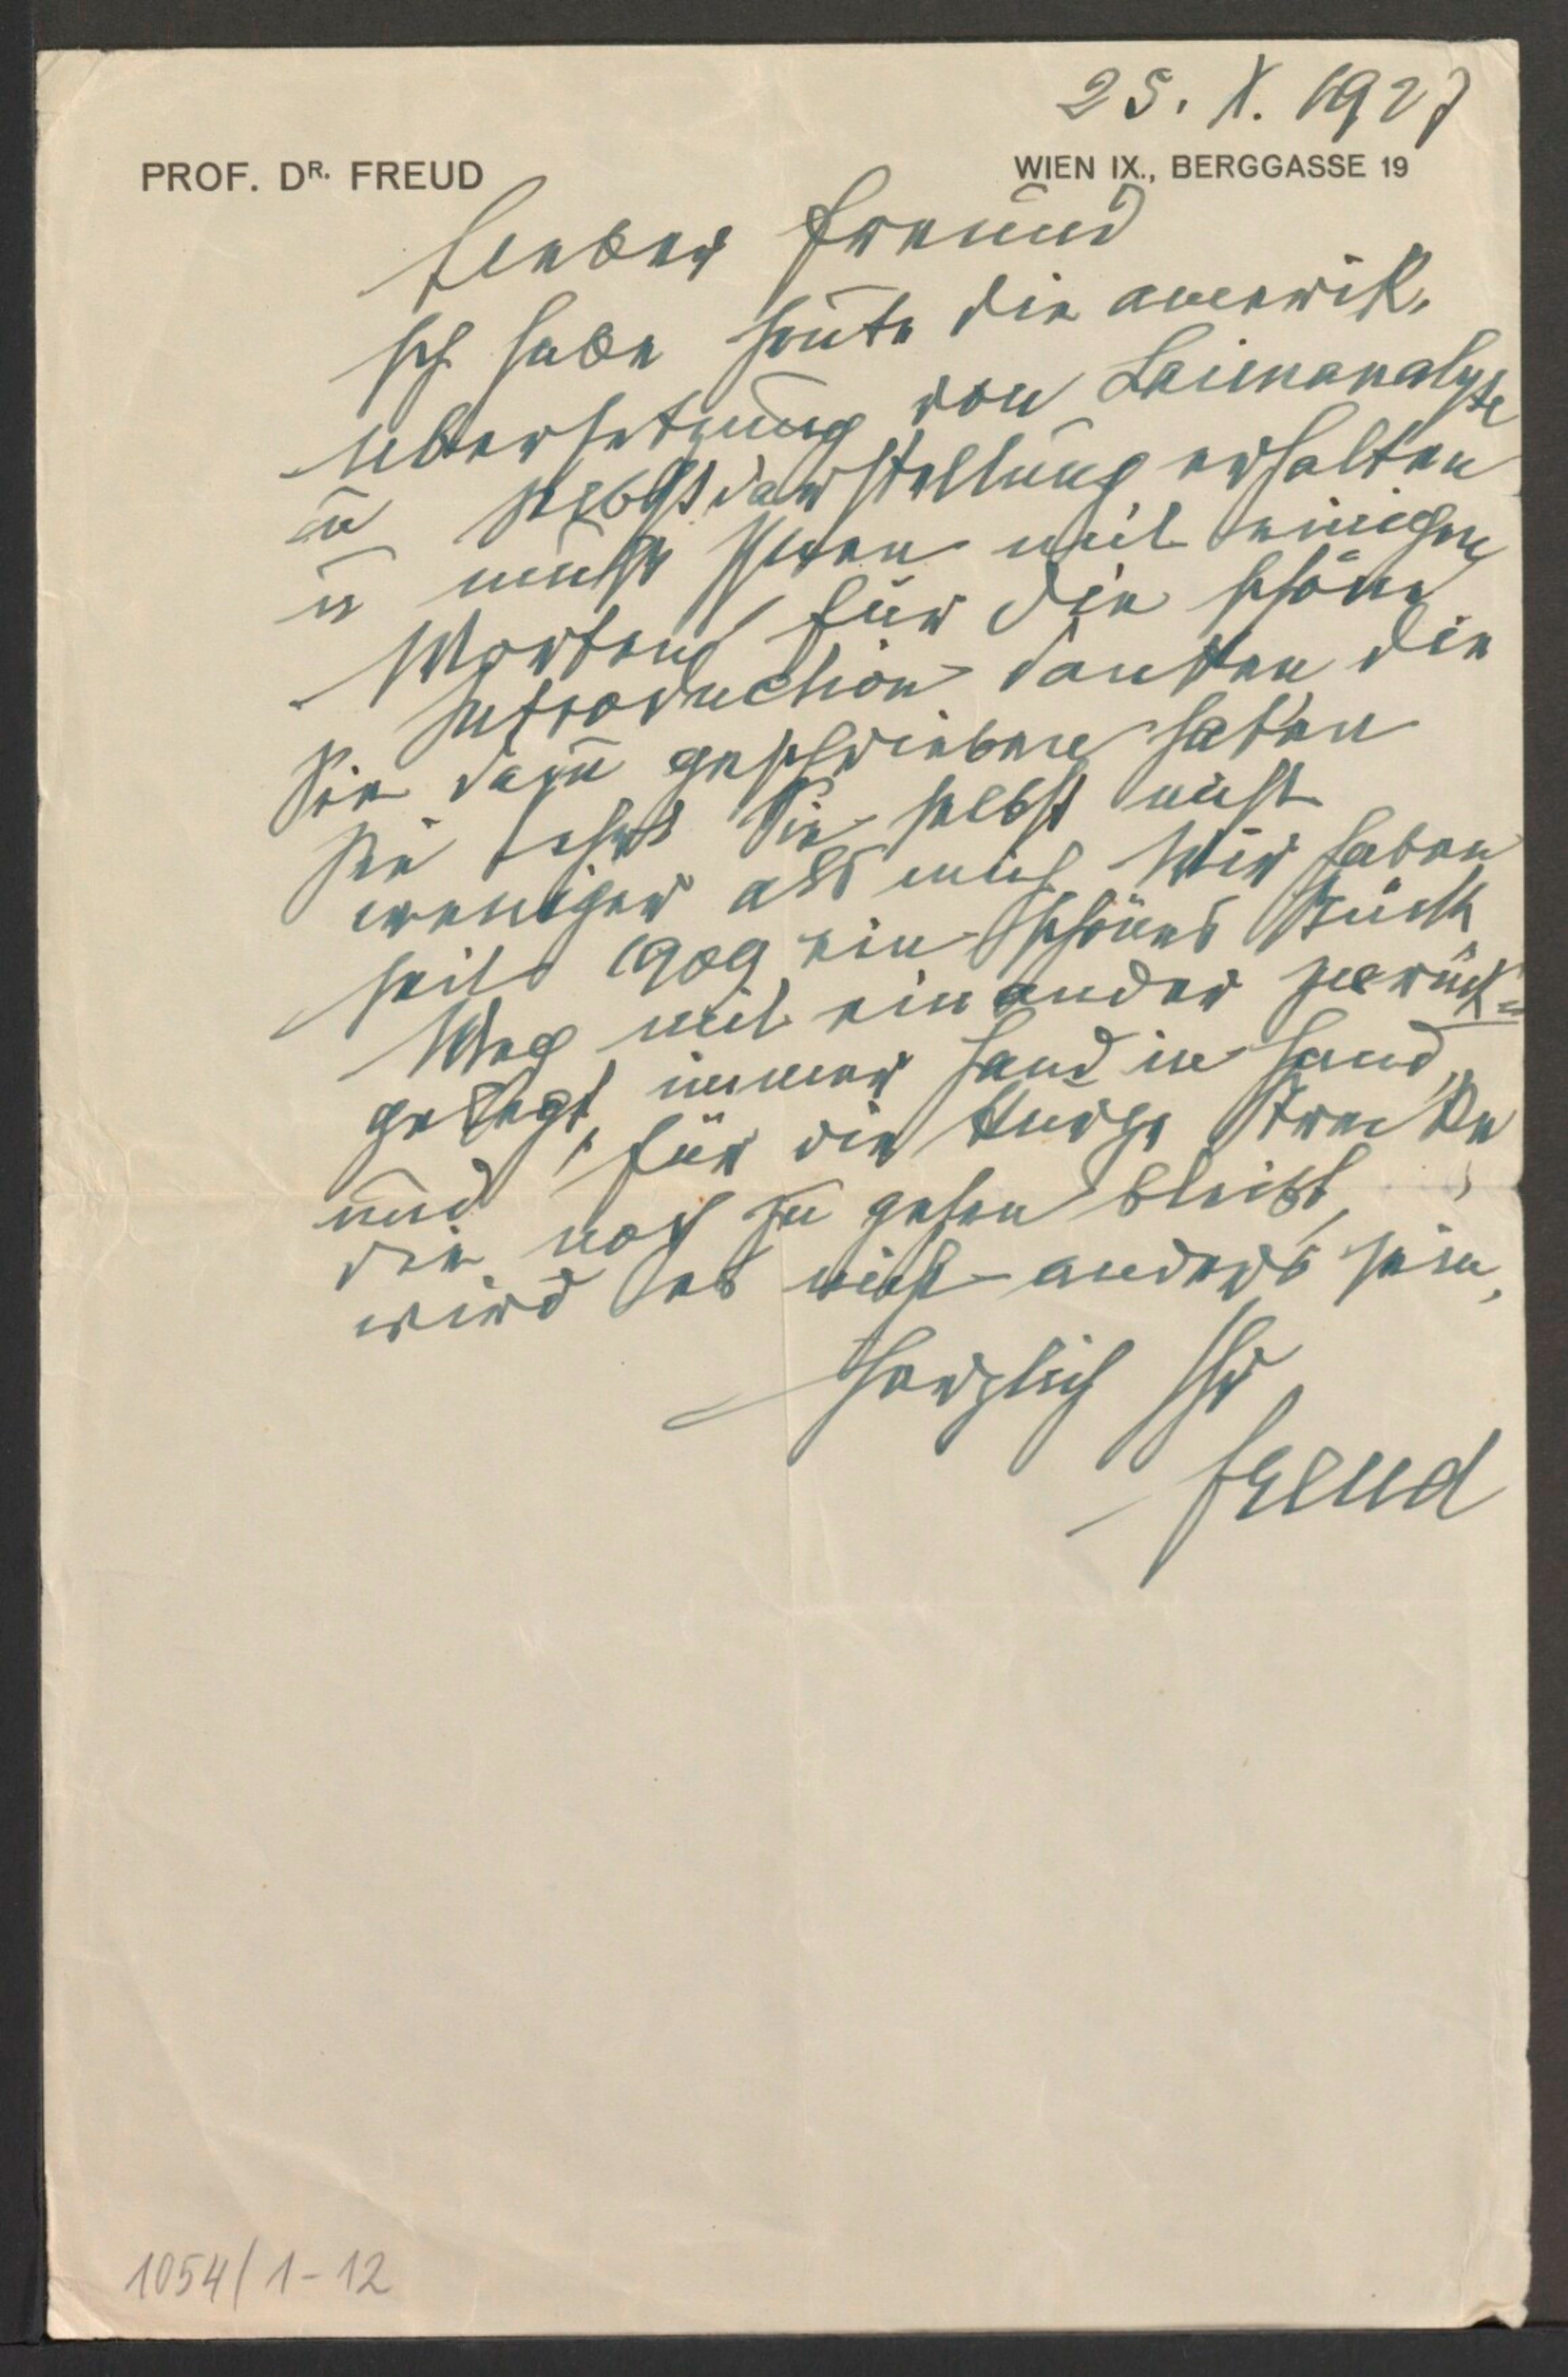 25. X. 1927
PROF. DR. FREUD
WIEN IX., BERGGASSE 19
Lieber Freund
Ich habe heute die amerik.
Übersetzung von Laienanalyse
u Selbstdarstellung erhalten
u muß Ihnen mit einigen
Worten für die schöne
Introduction danken die
Sie dazu geschrieben haben
Sie Sie selbst nicht
weniger als mich Wir haben
seit 1909 ein schönes Stück
Weg mit einander zurück=
gelegt, immer Hand in Hand,
und für die kurze Strecke
die noch zu gehen bleibt,
wird es nicht anders sein,
Herzlich Ihr
Freud
1054/1-12